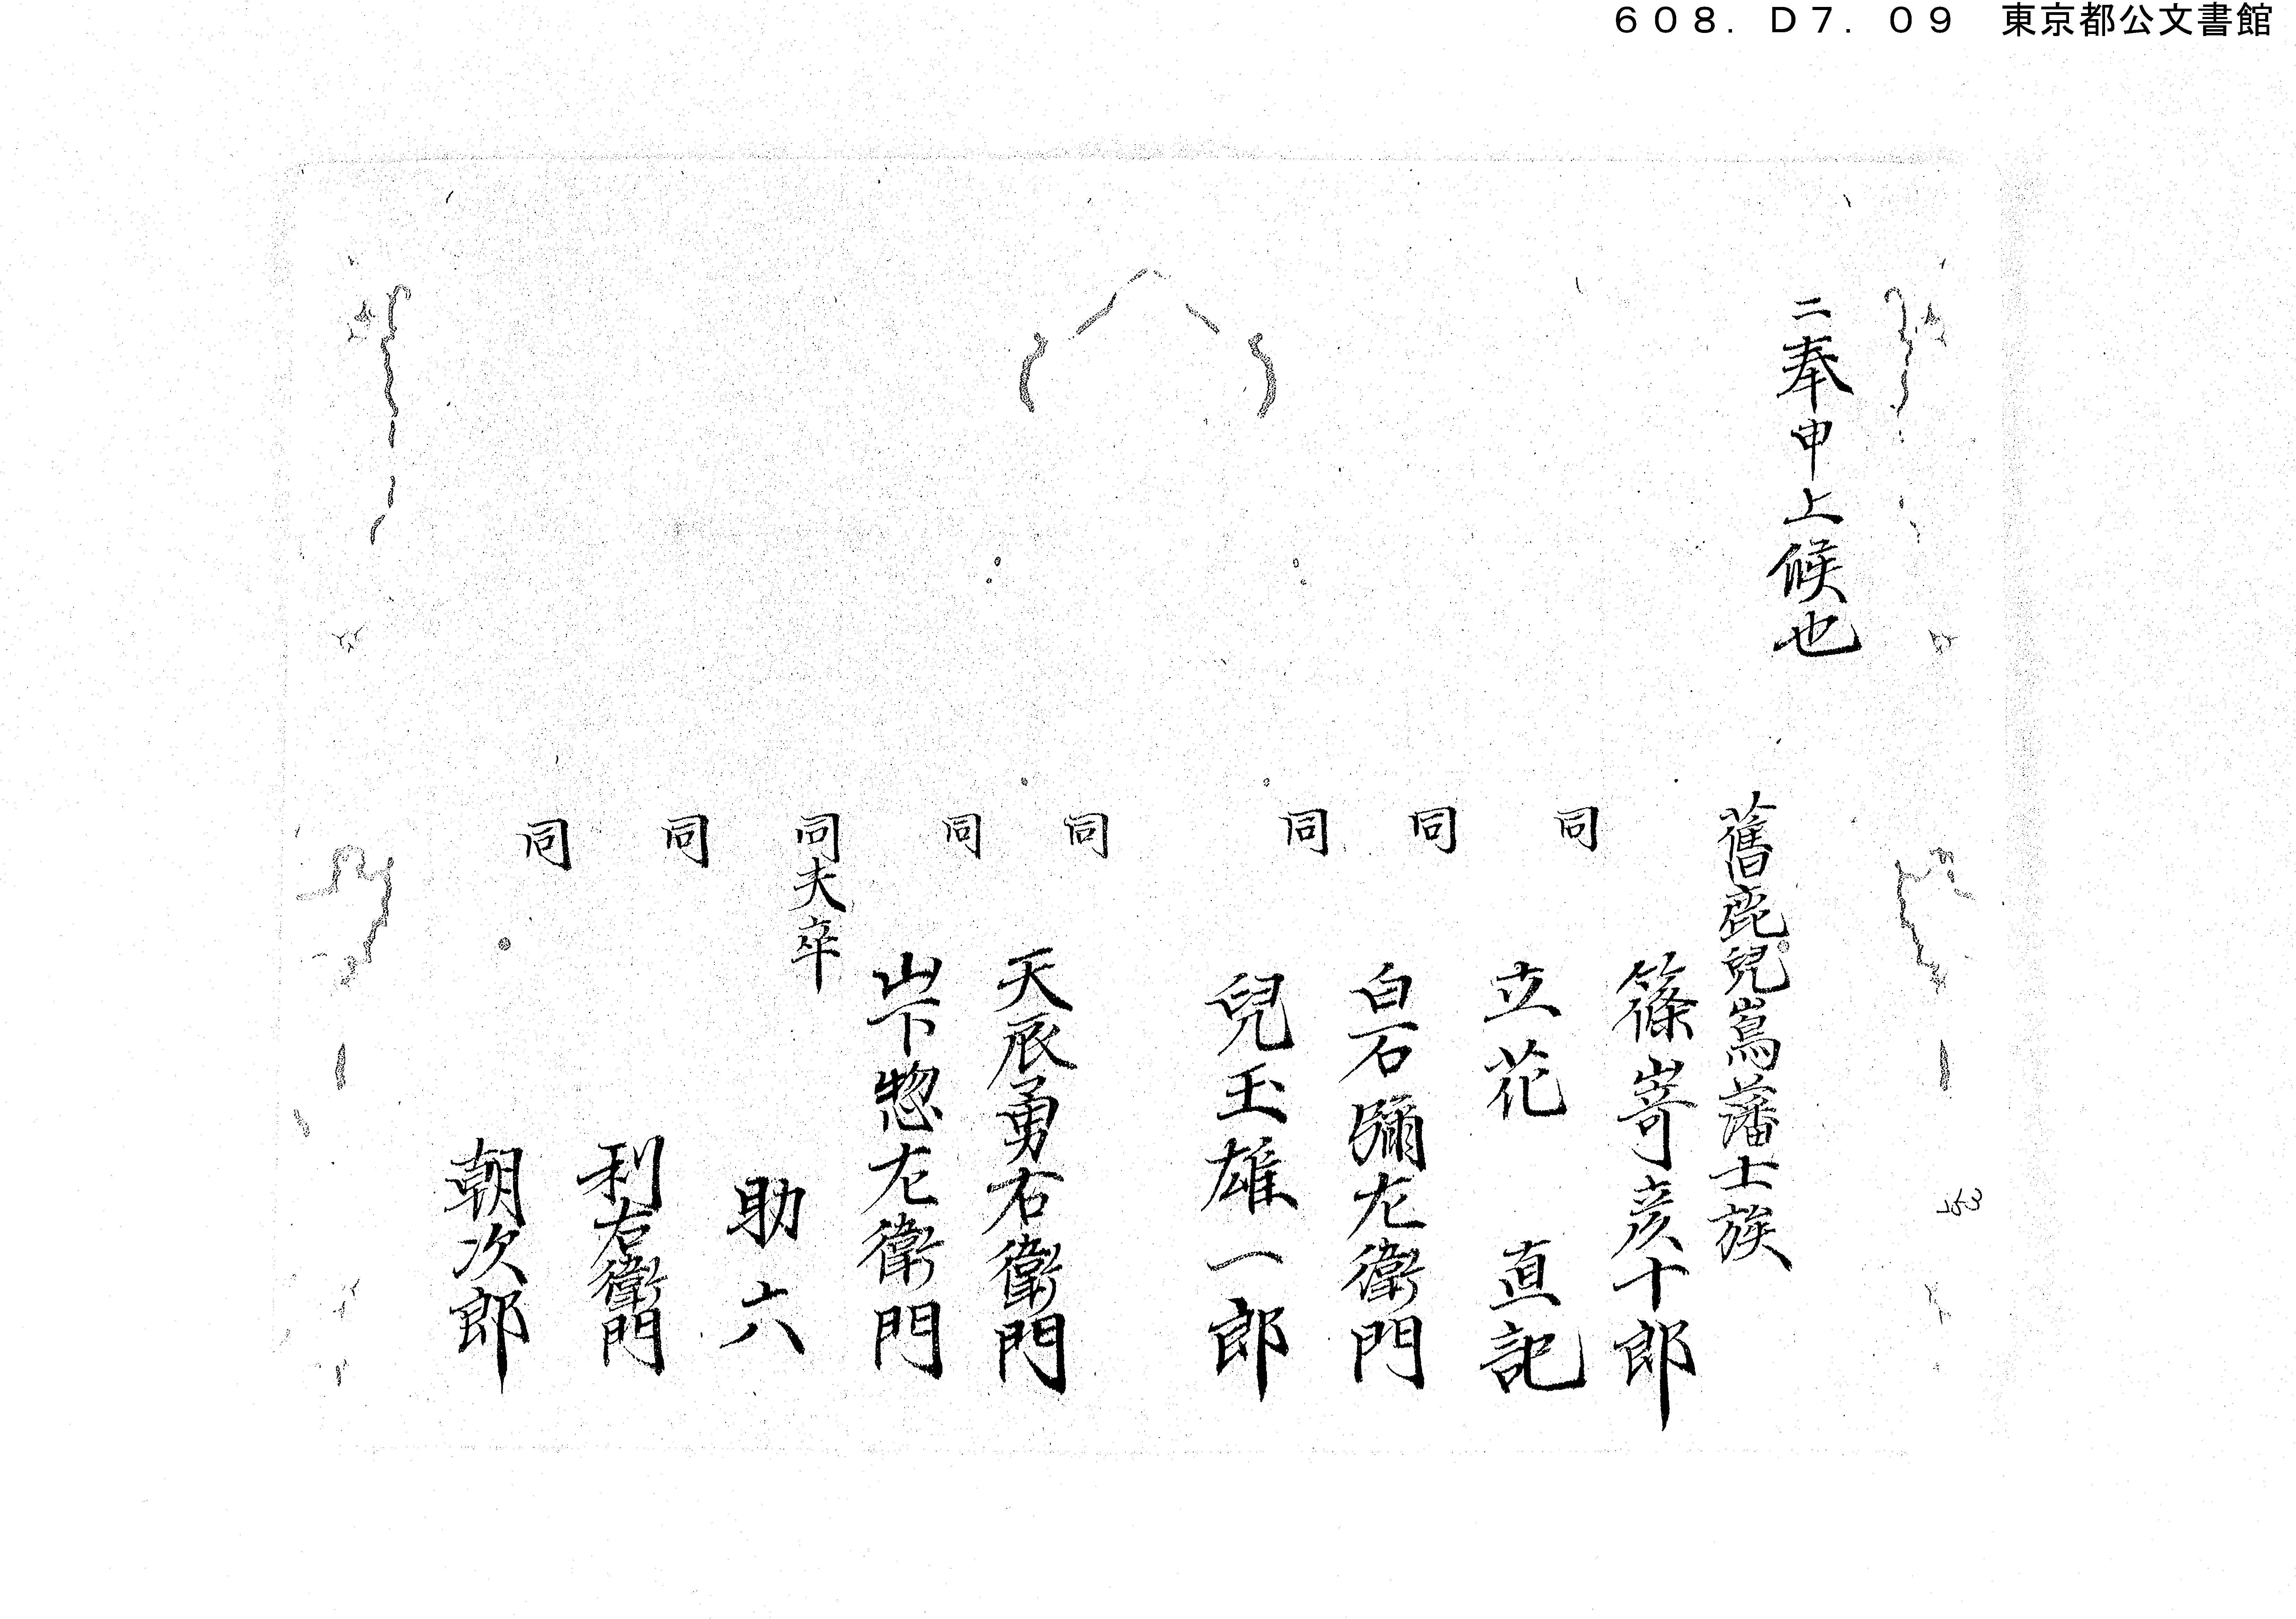 608. D7. 09 東京都公文書館
ニ奉申上候也
舊鹿兒嶌藩士族
篠嵜彦十郎
同
立花直記
同
白石彌左衛門
同
兒玉雄一郎
同
天辰勇右衛門
同
山下惣左衛門
同夫卒
助六
同
利右衛門
同
朝次郎